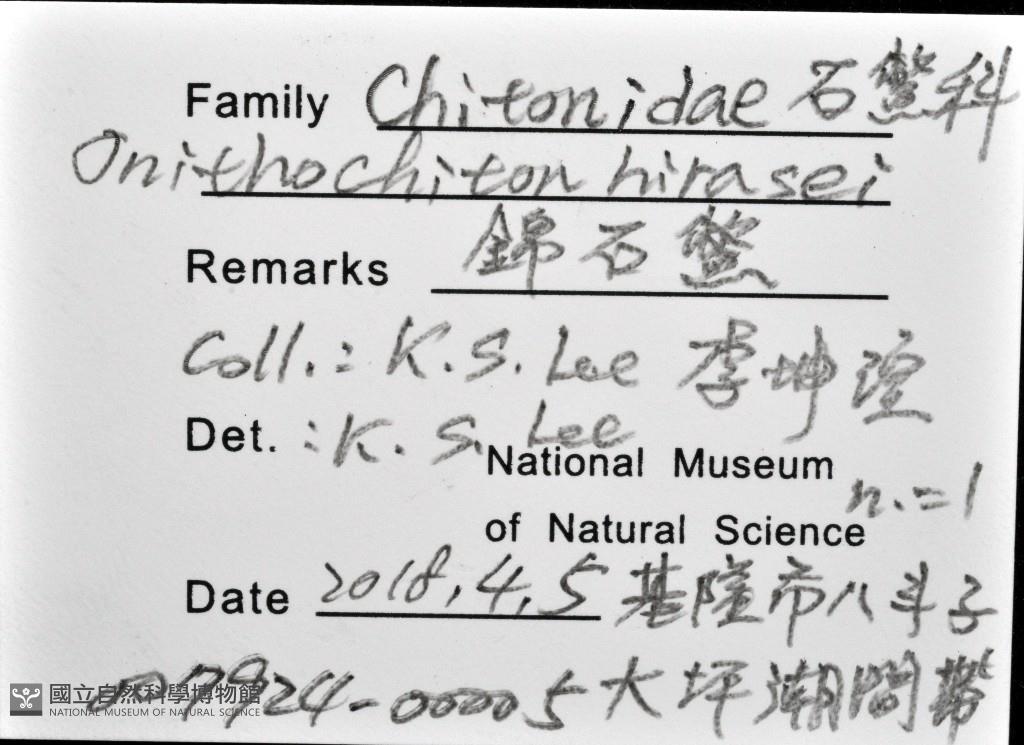 Family Chitonidae 石鱉科
Onithochiton hirasei
Remarks 錦石鱉
Coll.: K.S. Lee 李坤瑄
Det. : K. S. Lee
National Museum
n.=1
of Natural Science
Date 2018,4,5 基隆市八斗子
7924-00005 大坪潮間帶
國立自然科學博物館
NATIONAL MUSEUM OF NATURAL SCIENCE